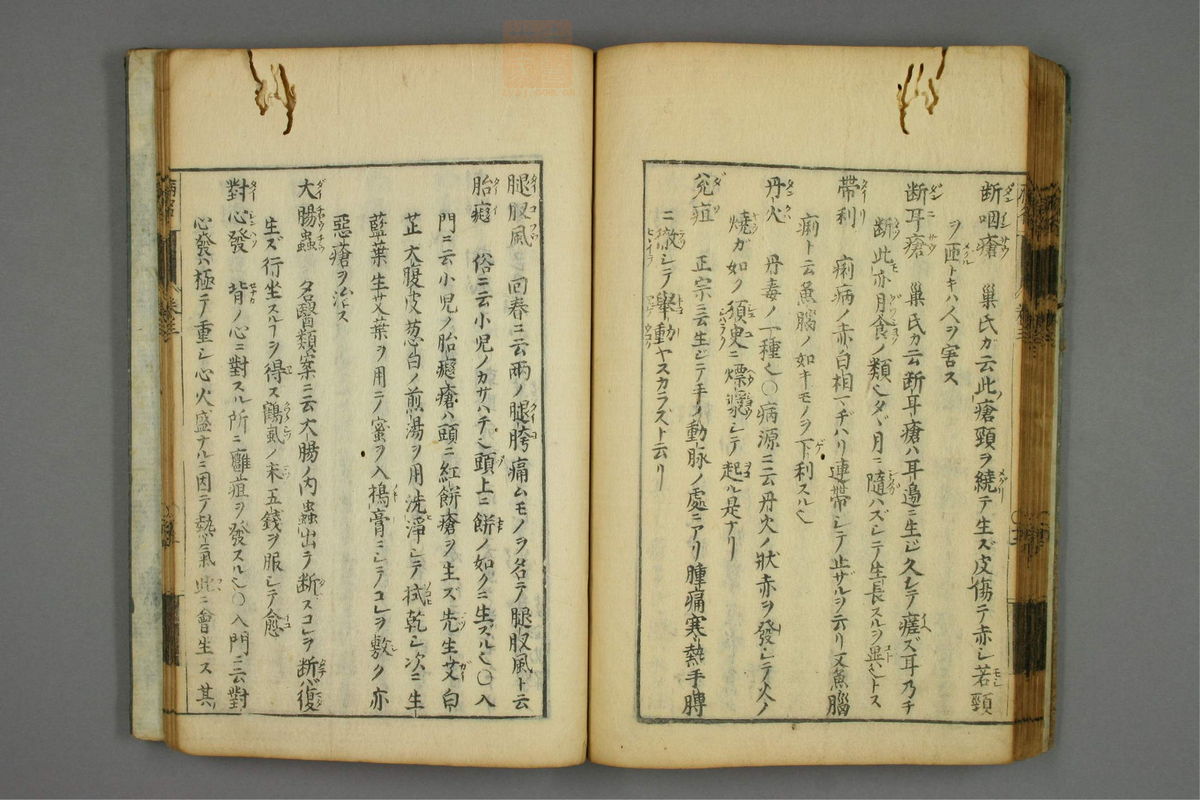 断咽瘡 巣氏ガ云此瘡頸ヲ繞テ生ズ皮傷テ赤シ若頸
ヲ匝トキハ人ヲ害ス
断耳瘡 巣氏ガ云断耳瘡ハ耳邉ニ生ジ久シテ瘥ズ耳乃チ
断此亦月食ノ類也タヾ月ニ隨ハズシテ生長スルヲ異也トス
帯利 痢病ノ赤白相マヂハリ連帯シテ止ザルヲ云リ又魚腦
痢ト云魚腦ノ如キモノヲ下利スル也
丹火 丹毒ノ一種也〇病源ニ云丹火ノ狀赤ヲ發シテ火ノ
燒ガ如ク須臾ニ熛漿シテ起ル是ナリ
兊疽 正宗ニ云生ジテ手ノ動脉ノ處ニアリ腫痛寒熱手膊
ニ徹シテ擧動ヤスカラズト云リ
腿𠬧風 回春ニ云兩ノ腿胯痛ムモノヲ名テ腿𠬧風ト云
胎癦 俗ニ云小児ノカサハチ也頭上ニ餅ノ如クニ生ズル也〇入
門ニ云小児ノ胎癦瘡ハ頭ニ紅餅瘡ヲ生ズ先生艾白
芷大腹皮葱白ノ煎湯ヲ用洗淨シテ拭乾シ次ニ生
藍葉生艾葉ヲ用テ蜜ヲ入搗膏ニシテコレヲ敷ク亦
惡瘡ヲ治ス
大腸蟲 名醫類案ニ云大腸ノ内蟲出テ断スコレヲ断バ復
生ズ行坐スルヿヲ得ス鶴虱ノ末五錢ヲ服シテ愈
對心發 背ノ心ニ對スル所ニ癰疽ヲ發スル也〇入門ニ云對
心發ハ極テ重シ心火盛ナルニ因テ熱氣此ニ會生ス其